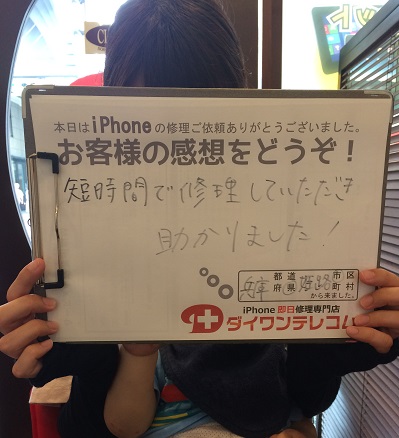 本日はiPhoneの修理ご依頼ありがとうございました。
お客様の感想をどうぞ！
短時間で修理していただき
助かりました！
都道 市区
府県 町村
兵庫 姫路
から来ました。
iPhone即日修理専門店
ダイワンテレコム